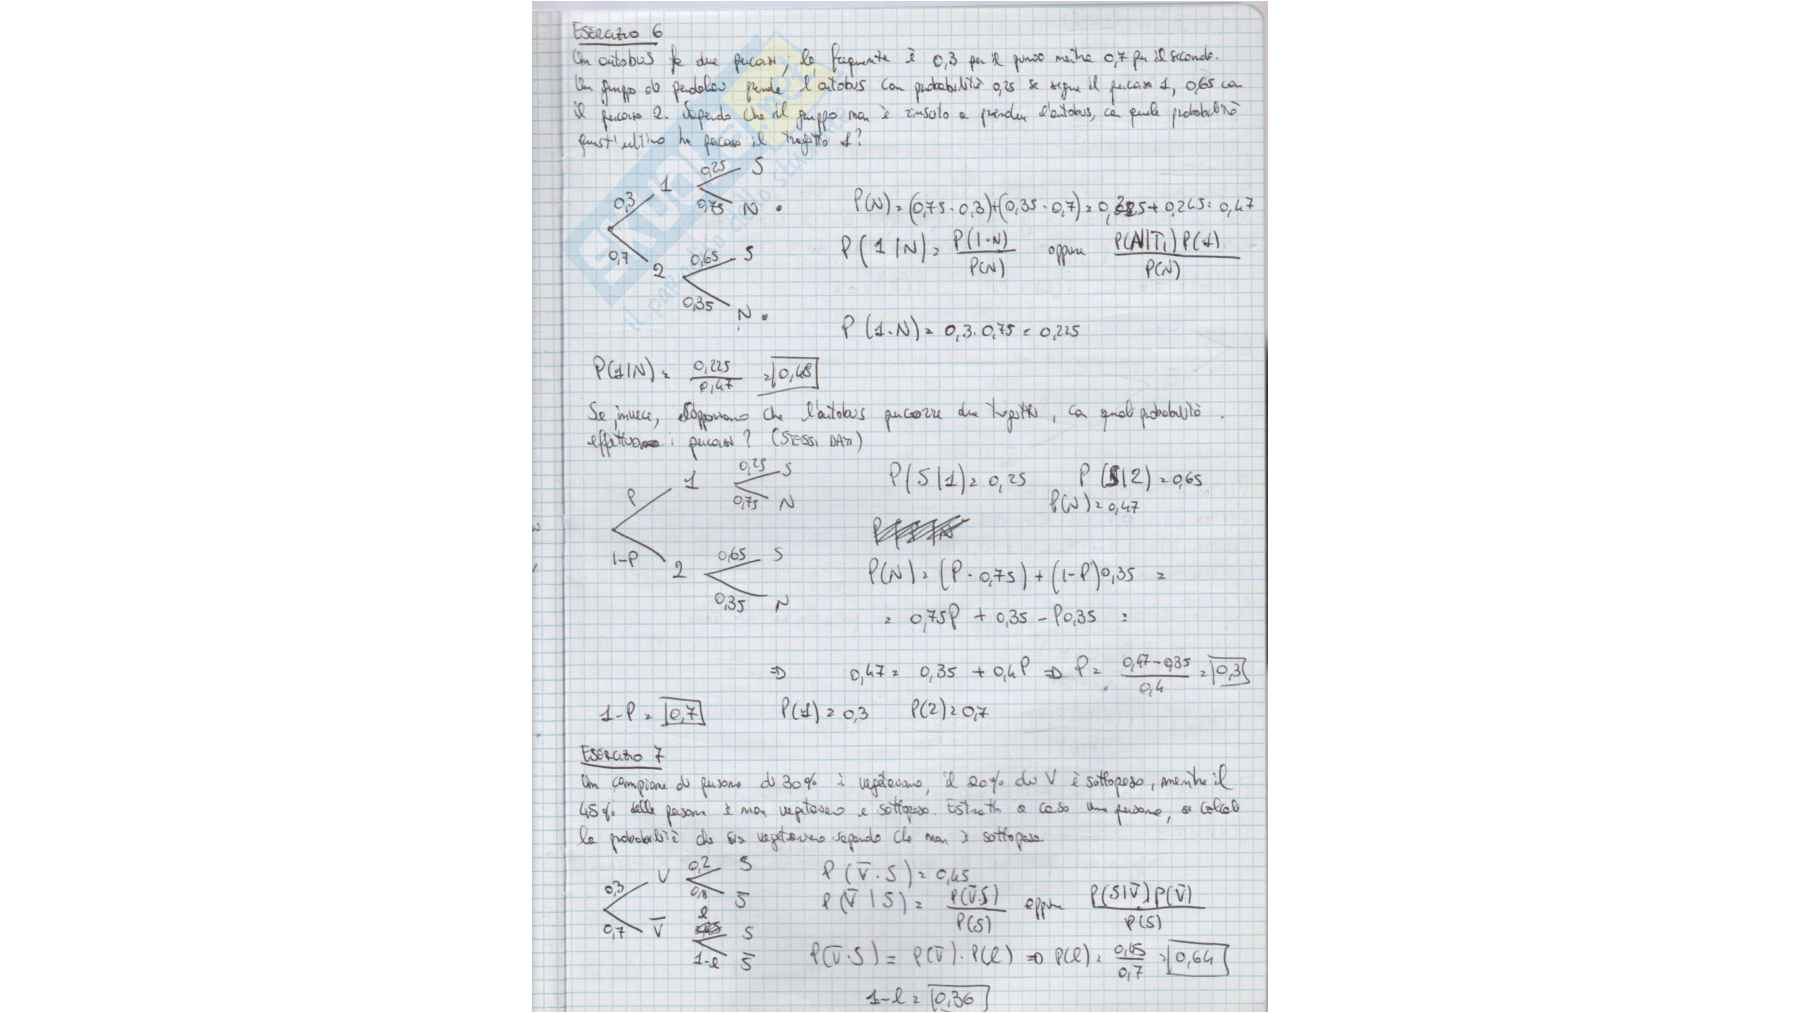 ESERCIZIO 6
Un autobus fa due percorsi, la frequente è 0,3 per il primo mentre 0,7 per il secondo.
Un gruppo di pendolari prende l'autobus con probabilità 0,25 se segue il percorso 1, 0,65 con
il percorso 2. Sapendo che il gruppo non è riuscito a prendere l'autobus, con quale probabilità
quest'ultimo ha percorso il tragitto 1?
0,3 1 0,25 S
0,75 N
0,7 2 0,65 S
0,35 N
P(N) = (0,75 · 0,3)+(0,35 · 0,7) = 0,225 + 0,245 = 0,47
P(1|N) = P(1·N) / P(N) oppure P(N|T1) P(1) / P(N)
P(1·N) = 0,3 · 0,75 = 0,225
P(1|N) = 0,225 / 0,47 = 0,48
Se invece, supponiamo che l'autobus percorre due tragitti, con quali probabilità
effettua i percorsi? (STESSI DATI)
P 1 0,25 S
0,75 N
1-P 2 0,65 S
0,35 N
P(S|1) = 0,25 P(S|2) = 0,65
P(N) = 0,47
P(N) = (P · 0,75) + (1-P)0,35 =
= 0,75P + 0,35 - P0,35 =
⇒ 0,47 = 0,35 + 0,4P ⇒ P = 0,47-0,35 / 0,4 = 0,3
1-P = 0,7 P(1) = 0,3 P(2) = 0,7
ESERCIZIO 7
Un campione di persone di 30% è vegetariano, il 20% di V è sottopeso, mentre il
45% delle persone è non vegetariano e sottopeso. Estratta a caso una persona, si calcoli
la probabilità che sia vegetariano sapendo che non è sottopeso
0,3 V 0,2 S
0,8 S̅
0,7 V̅ l S
1-l S̅
P(V̅·S) = 0,45
P(V̅|S) = P(V̅·S) / P(S) oppure P(S|V̅) P(V̅) / P(S)
P(V̅·S) = P(V̅) · P(l) ⇒ P(l) = 0,45 / 0,7 = 0,64
1-l = 0,36